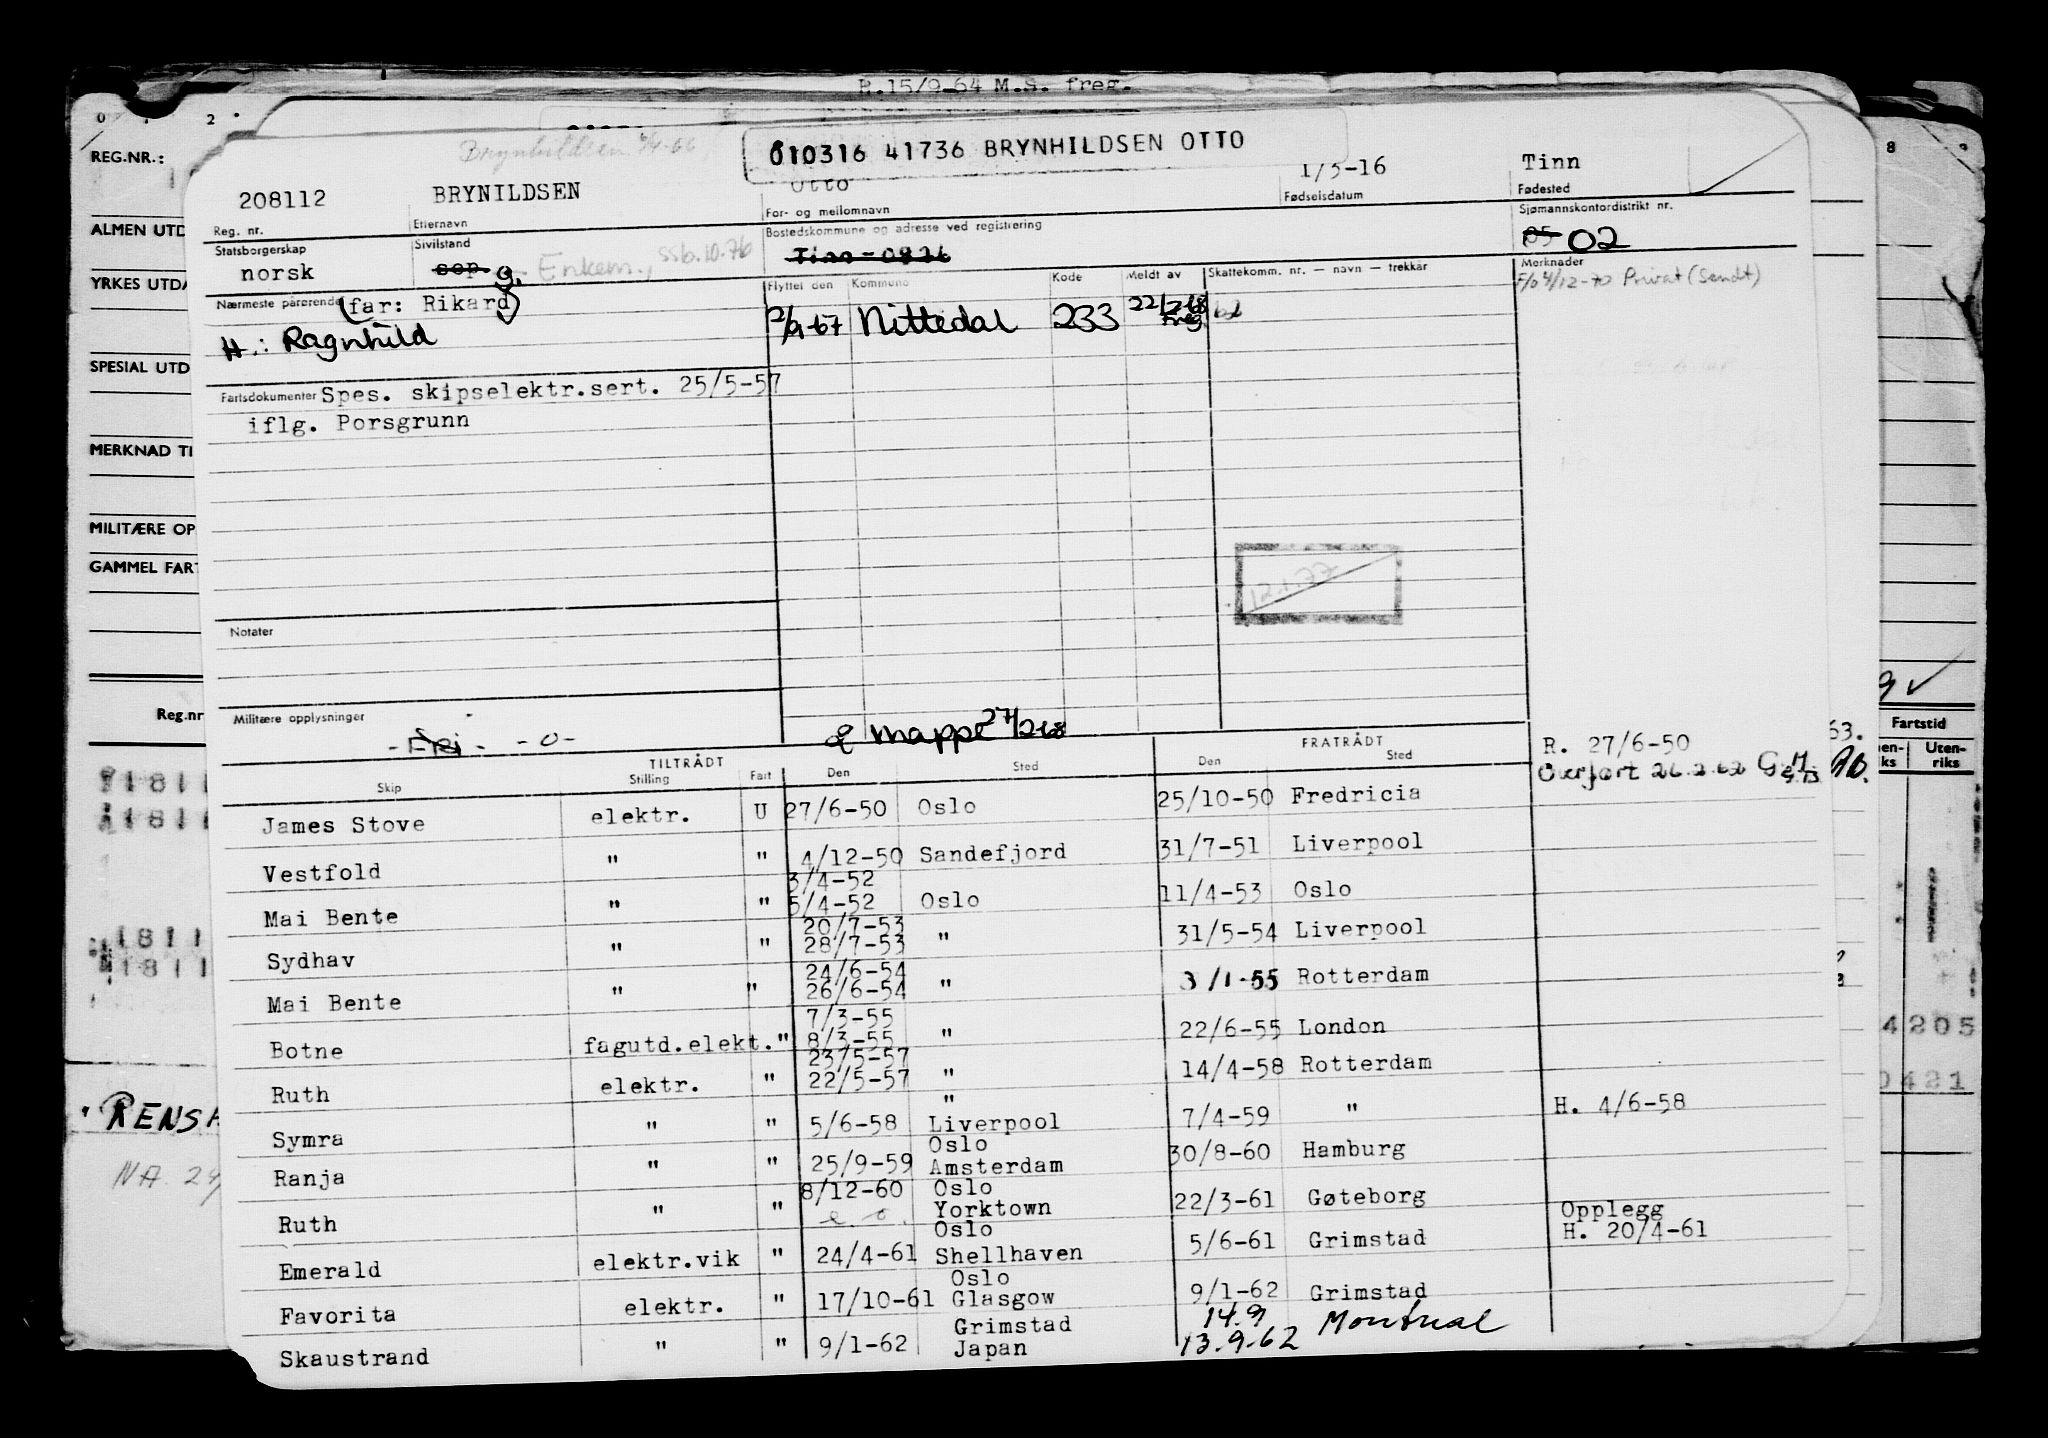 R.15/9-64 M.S. freg.
0 1 2
8
REG.NR.:
Brynhildsen 6/4-66
010316 41736 BRYNHILDSEN OTTO
208112 BRYNILDSEN Otto 1/3-16 Tinn
Reg. nr. Etternavn For- og mellomnavn Fødselsdatum Fødested
ALMEN UTD
Statsborgerskap Sivilstand Bostedskommune og adresse ved registrering Sjømannskontordistrikt nr.
norsk sep. g. Enkem., ssb.10.76 Tinn - 0826 05 02
YRKES UTDA
Nærmeste pårørende (far: Rikard) Flyttet den Kommune Kode Meldt av Skattekomm. nr. — navn — trekkår Merknader
F/6 4/12-70 Privat (Sendt)
H.: Ragnhild 2/9-67 Nittedal 233 22/2-68 Freg.
SPESIAL UTD
Fartsdokumenter Spes. skipselektr.sert. 25/5-57
iflg. Porsgrunn
MERKNAD TI
MILITÆRE OP
GAMMEL FART
12.1.77
Notater
Reg.nr
Militære opplysninger
- Fri - -0-
mappe 27/2-68
Fartstid
TILTRÅDT FRATRÅDT
Skip Stilling Fart Den Sted Den Sted
R. 27/6-50
Overført 26.2.62
63.
Uten-
riks
James Stove elektr. U 27/6-50 Oslo 25/10-50 Fredricia
Vestfold " " 4/12-50 Sandefjord 31/7-51 Liverpool
3/4-52
Mai Bente " " 5/4-52 Oslo 11/4-53 Oslo
20/7-53
Sydhav " " 28/7-53 " 31/5-54 Liverpool
24/6-54
Mai Bente " " 26/6-54 " 3/1-55 Rotterdam
7/3-55
Botne fagutd.elekt. " 8/3-55 " 22/6-55 London
23/5-57
Ruth elektr. " 22/5-57 " 14/4-58 Rotterdam
"
Symra " " 5/6-58 Liverpool 7/4-59 " H. 4/6-58
Oslo
Ranja " " 25/9-59 Amsterdam 30/8-60 Hamburg
8/12-60 Oslo
Ruth " " Yorktown 22/3-61 Gøteborg Opplegg
Oslo
Emerald elektr.vik " 24/4-61 Shellhaven 5/6-61 Grimstad H. 20/4-61
Oslo
Favorita elektr. " 17/10-61 Glasgow 9/1-62 Grimstad
Grimstad 14.9
Skaustrand " " 9/1-62 Japan 13.9.62 Montreal
4205
0421
RENSA
NA.